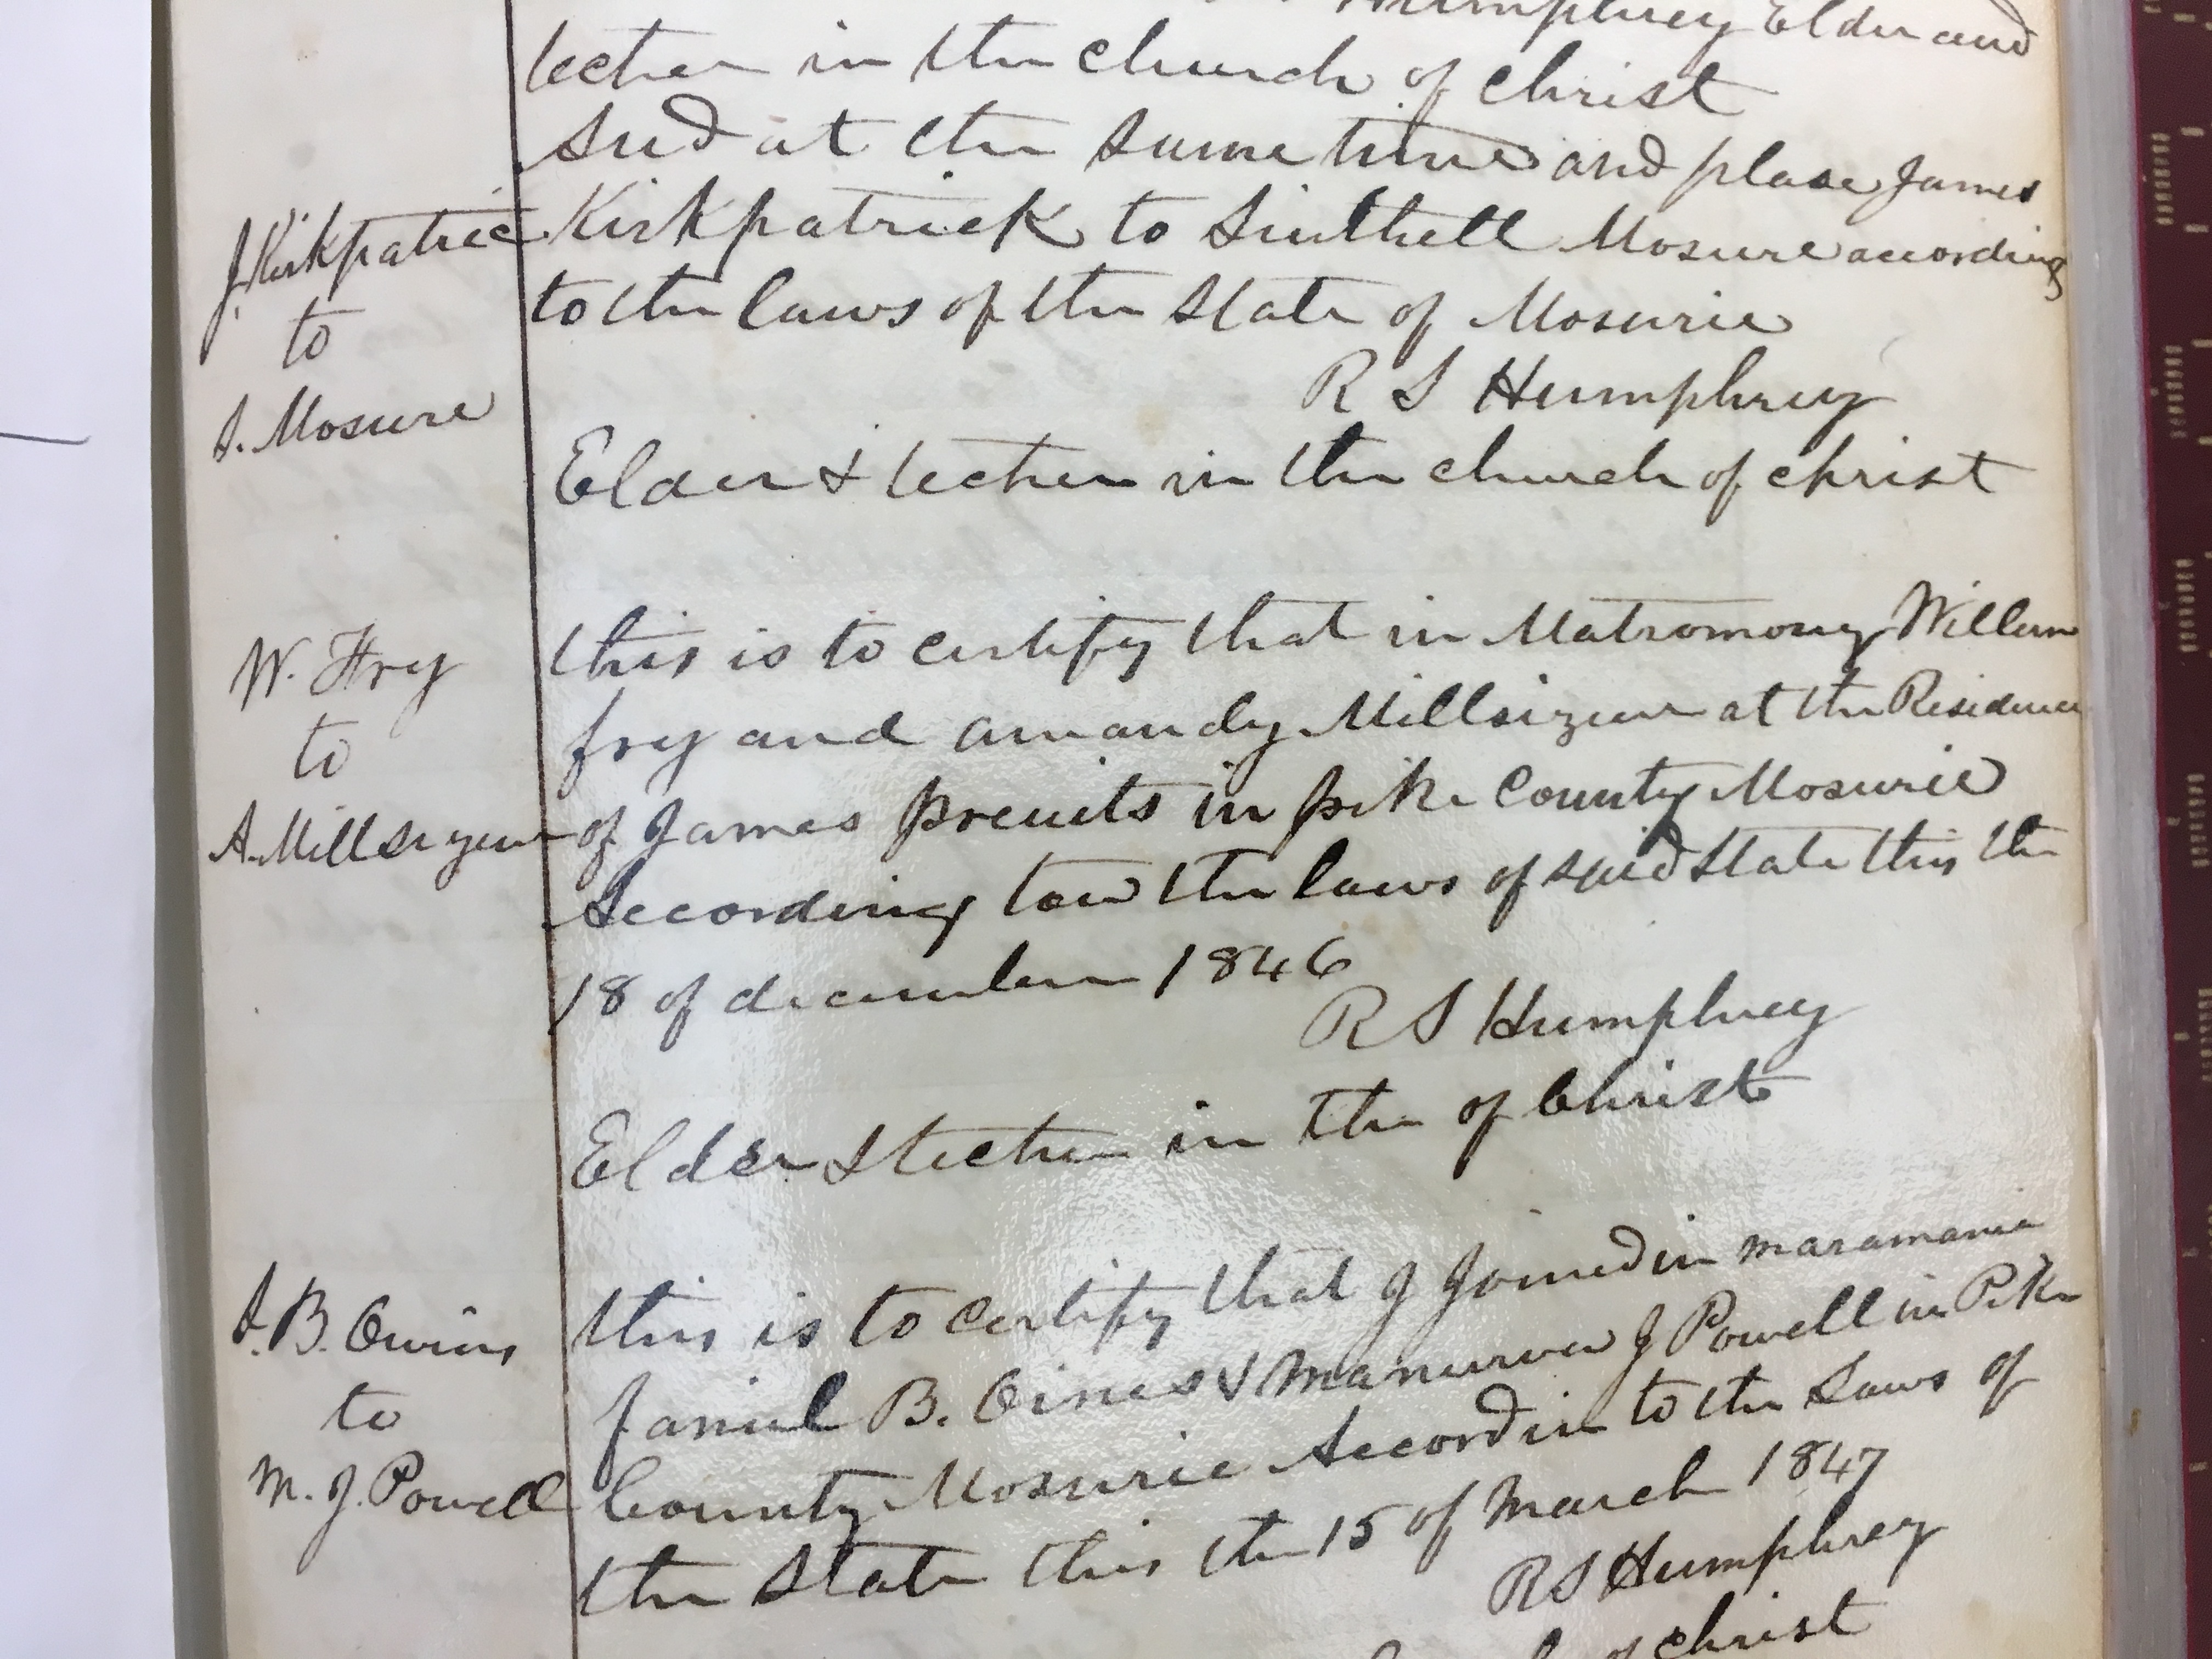 Humphrey Elder and
tecther in the church of christ
And at the same time and plase James
J. Kirkpatric Kirkpatrick to Sinthell Mosure according
to to the laws of the State of Mosurie
S. Mosure R S Humphrey
Elder & tecther in the church of christ
W. Fry this is to certify that in Matromony Willum
to fry and amandy Millsizeur at the Residence
A. Millsizeur of James preuits in pike County Mosurie
According tow the laws of said State this the
18 of december 1846
R S Humphrey
Elder & tecther in the of Christ
B. Owins this is to certify that J Joined in maramania
to B. Oines & Manurva J Powell in Pike
M. J. Powell County Mosurie Accordin to the Laws of
the State this the 15 of March 1847
R S Humphrey
of christ